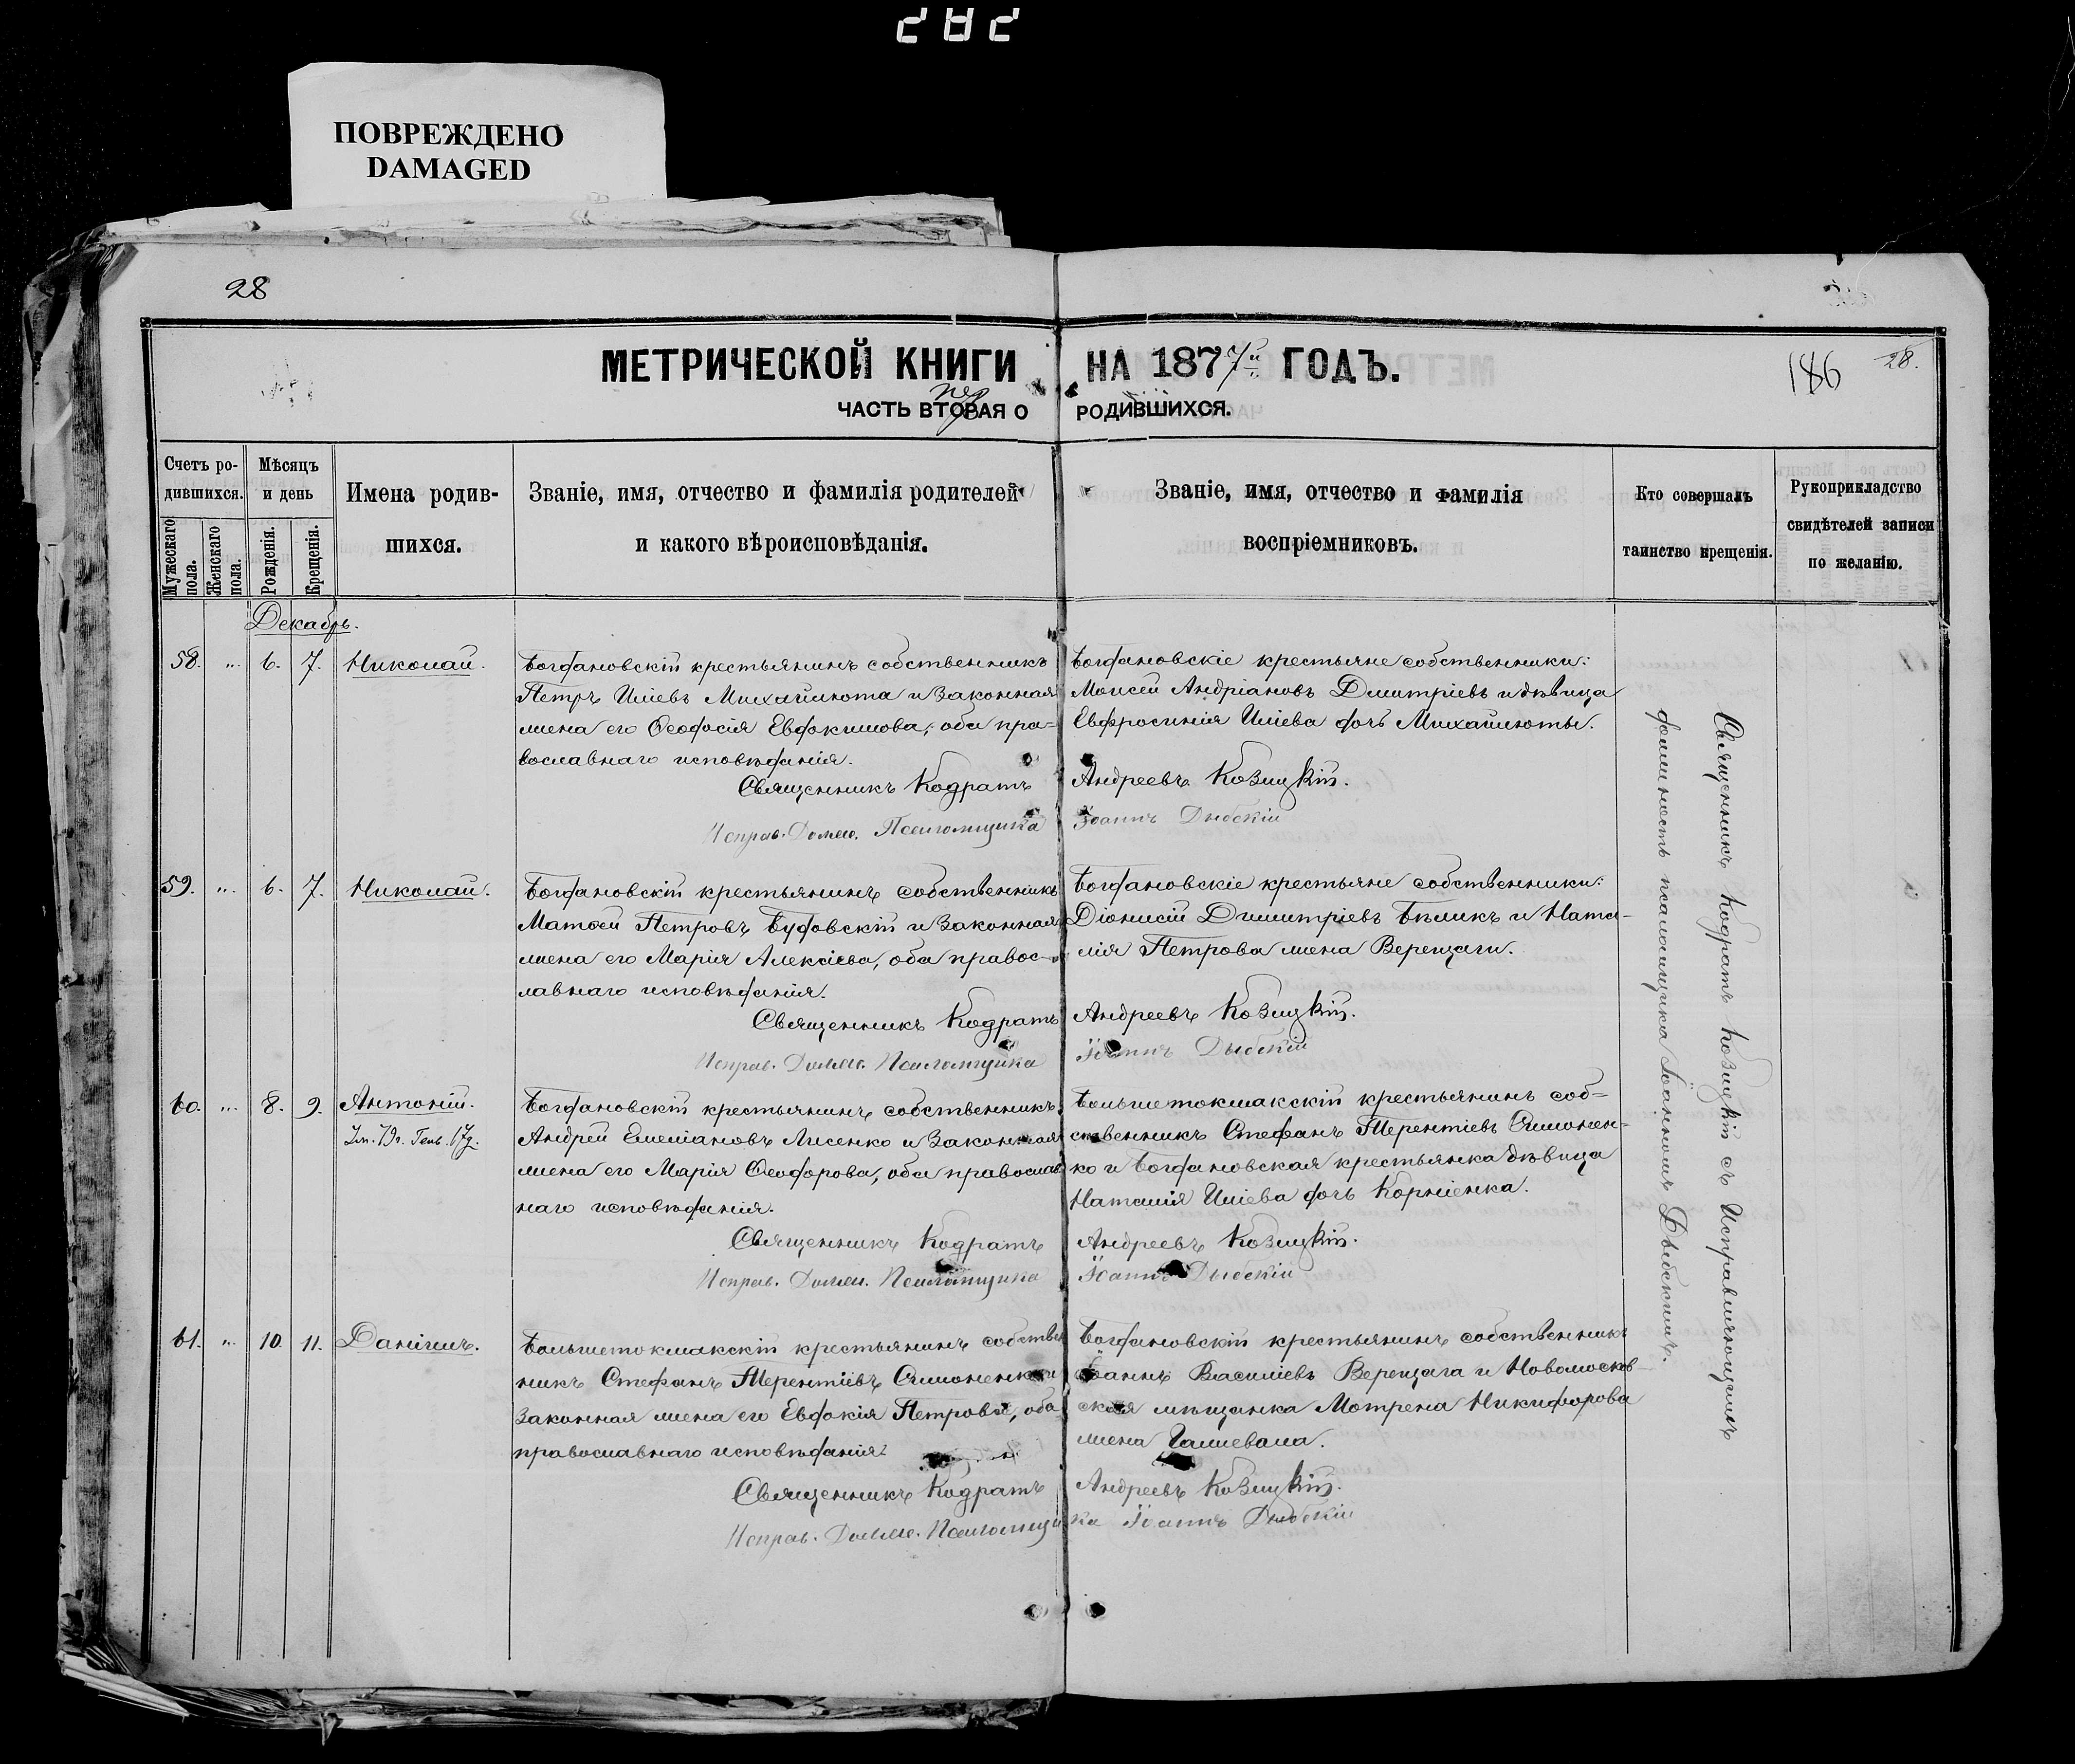 282
ПОВРЕЖДЕНО
DAMAGED
28
МЕТРИЧЕСКОЙ КНИГИ НА 1877й ГОДЪ.
186 28.
ЧАСТЬ ВТОРАЯ О РОДИВШИХСЯ.
пер
Счетъ ро-
дившихся.
Мужескаго пола.
Женскаго пола.
Мѣсяцъ
и день
Рожденія.
Крещенія.
Имена родив-
шихся.
Званіе, имя, отчество и фамилія родителей
и какого вѣроисповѣданія.
Званіе, имя, отчество и фамилія
воспріемниковъ.
Кто совершалъ
таинство крещенія.
Рукоприкладство
свидѣтелей записи
по желанію.
Декабрь.
58. „. 6. 7. Николай.
Богдановскій крестьянинъ собственникъ
Петръ Иліевъ Михайлюта и законная
жена его Ѳеодосія Евдокимова, оба пра=
вославнаго исповѣданія.
Богдановскіе крестьяне собственники:
Моисей Андріановъ Димитріевъ и дѣвица
Евфросинія Иліева дочь Михайлюты.
Священникъ Кодратъ Андреевъ Козицкій.
Исправ. Долж. Псаломщика Іоаннъ Дыбскій
59. „. 6. 7. Николай.
Богдановскій крестьянинъ собственникъ
Матѳей Петровъ Будовскій и законная
жена его Марія Алексіева, оба правос-
лавнаго исповѣданія.
Богдановскіе крестьяне собственники:
Діонисій Димитріевъ Бѣликъ и Ната-
лія Петрова жена Верещаги.
Священникъ Кодратъ Андреевъ Козицкій.
Исправ. Долж. Псаломщика Іоаннъ Дыбскій
60. „. 8. 9. Антоній.
Богдановскій крестьянинъ собственникъ
Андрей Емеліановъ Лисенко и законная
жена его Марія Ѳеодорова, оба православ
наго исповѣданія.
Большетокмакскій крестьянинъ соб=
ственникъ Стефанъ Терентіевъ Симонен-
ко и Богдановская крестьянка дѣвица
Наталія Иліева дочь Корніенка.
Священникъ Кодратъ Андреевъ Козицкій.
Исправ. Долж. Псаломщика Іоаннъ Дыбскій
61. „. 10. 11. Даніилъ.
Большетокмакскій крестьянинъ собствен
никъ Стефанъ Терентіевъ Симоненко и
законная жена его Евдокія Петрова, оба
православнаго исповѣданія.
Богдановскій крестьянинъ собственникъ
Іоаннъ Василіевъ Верещага и Новомосков
ская мѣщанка Мотрена Никифорова
жена
Священникъ Кодратъ Андреевъ Козицкій.
Исправ. Долж. Псаломщика Іоаннъ Дыбскій
Священникъ Кодратъ Козицкій съ Исправляющимъ
должность псаломщика Іоанномъ Дыбскимъ.